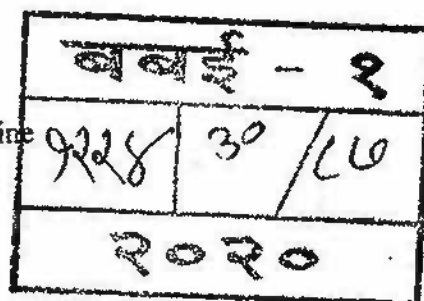 बबई - १
ine १२२४ ३० / ८७
२०२०